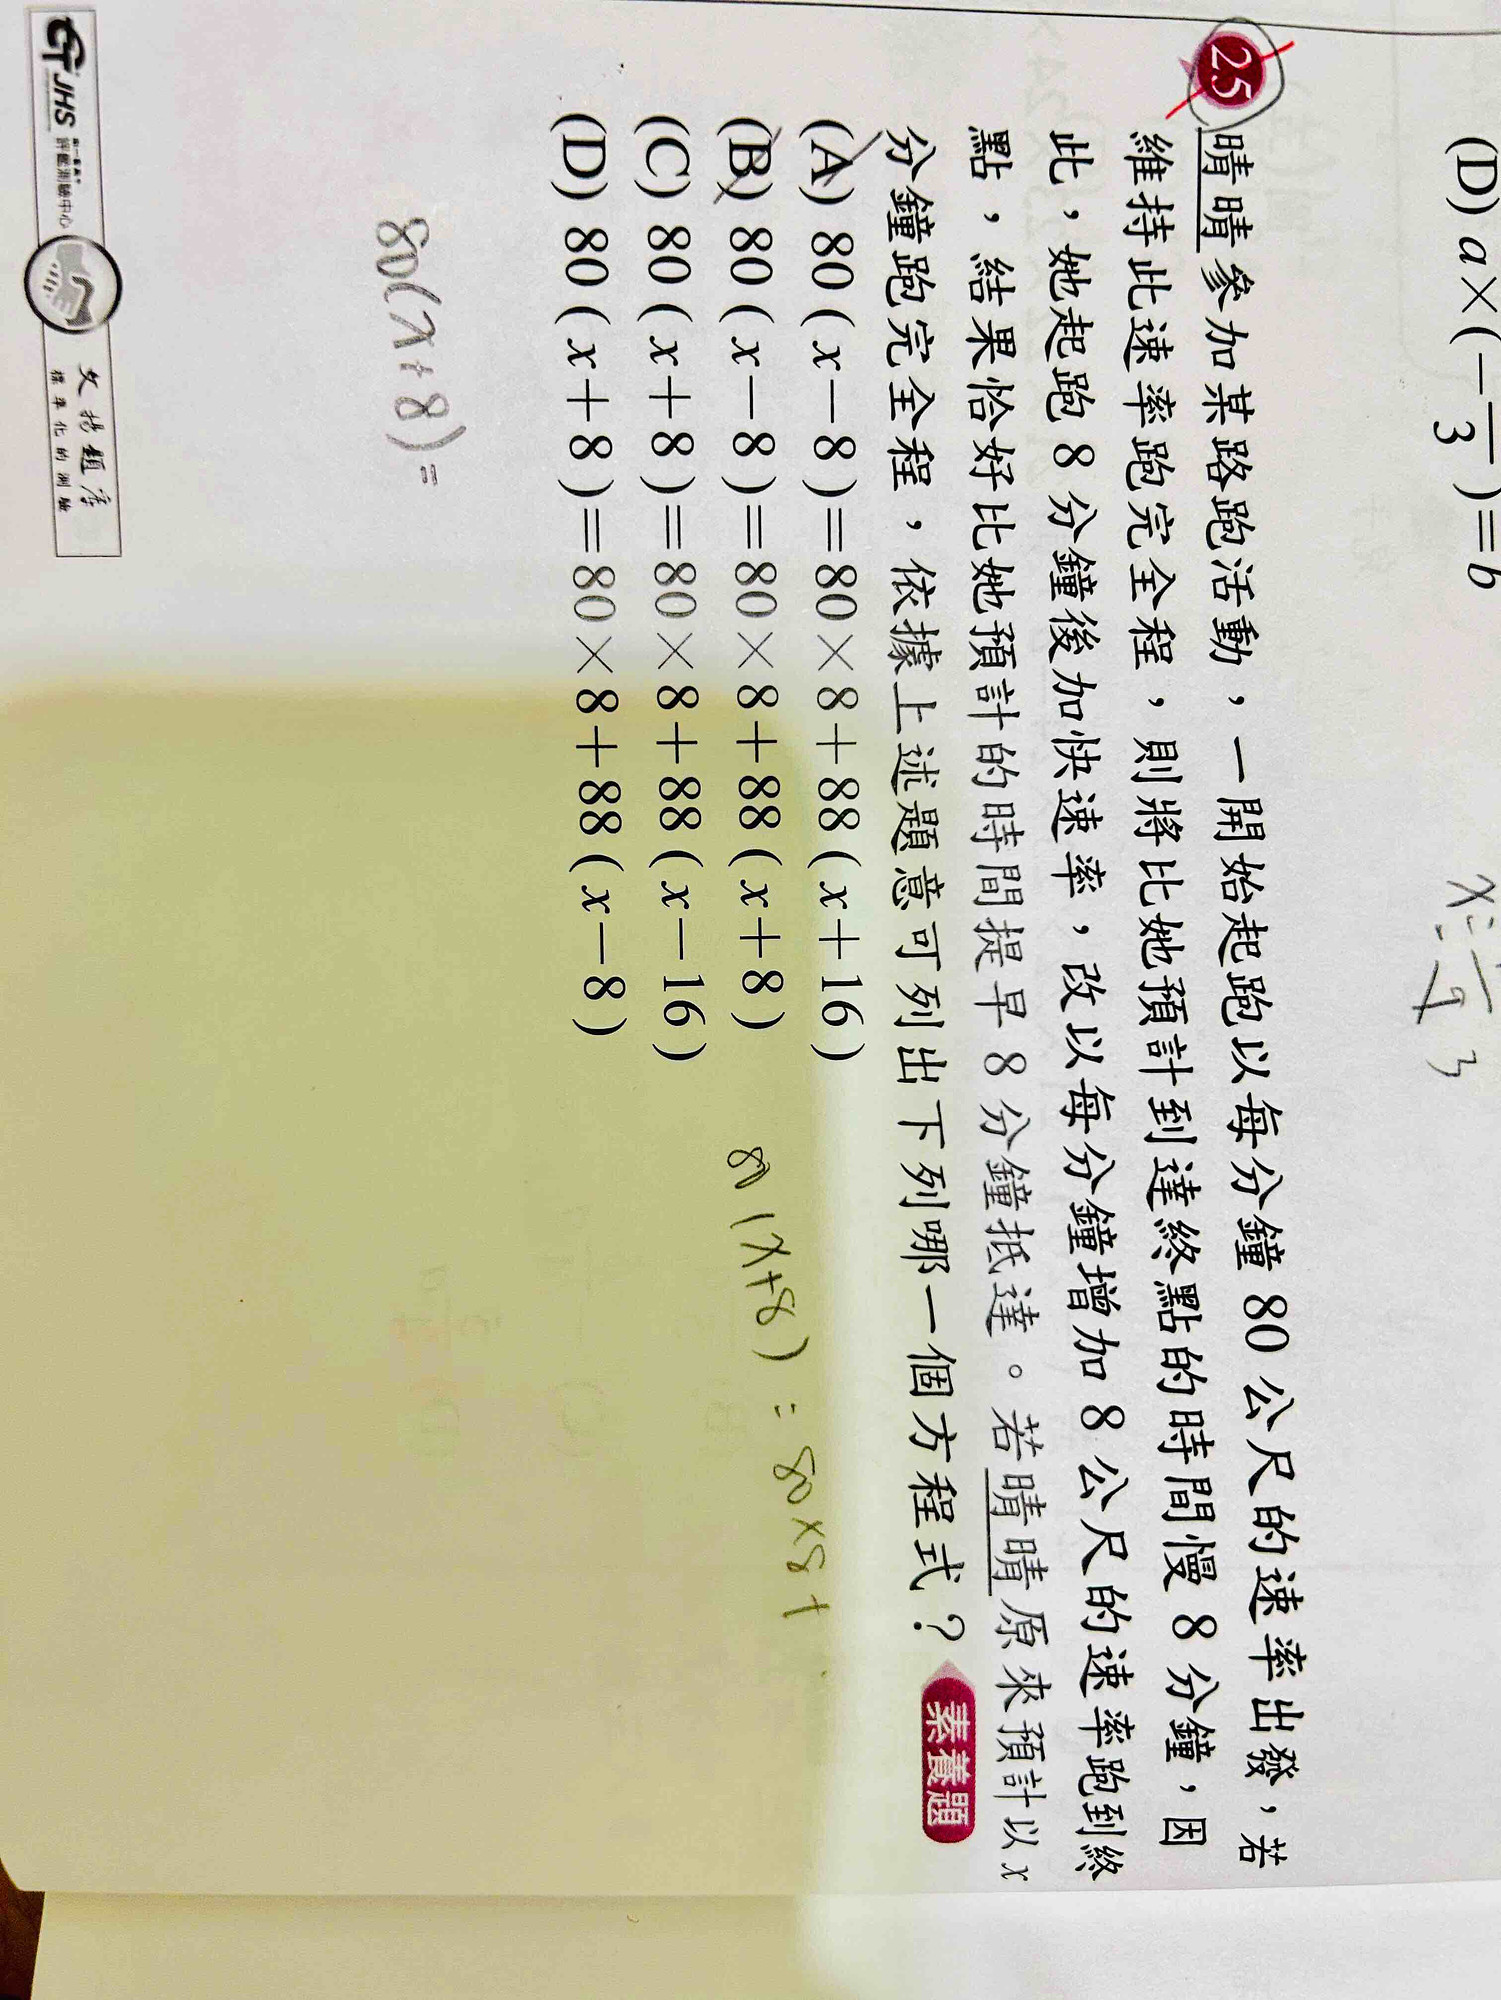 (D) a×(－—3)＝b
x=-1/9 3
25 晴晴參加某路跑活動，一開始起跑以每分鐘 80 公尺的速率出發，若
維持此速率跑完全程，則將比她預計到達終點的時間慢 8 分鐘，因
此，她起跑 8 分鐘後加快速率，改以每分鐘增加 8 公尺的速率跑到終
點，結果恰好比她預計的時間提早 8 分鐘抵達。若晴晴原來預計以 x
分鐘跑完全程，依據上述題意可列出下列哪一個方程式？ 素養題
(A) 80(x－8)＝80×8＋88(x＋16)
(B) 80(x－8)＝80×8＋88(x＋8)
(C) 80(x＋8)＝80×8＋88(x－16)
(D) 80(x＋8)＝80×8＋88(x－8)
80(x+8)=80×8+
80(x+8)=
JHS 評鑑測驗中心 文揚題庫
標準化的測驗